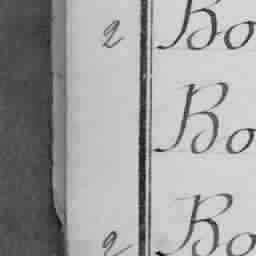 2 Bo
Bo
2 Bo